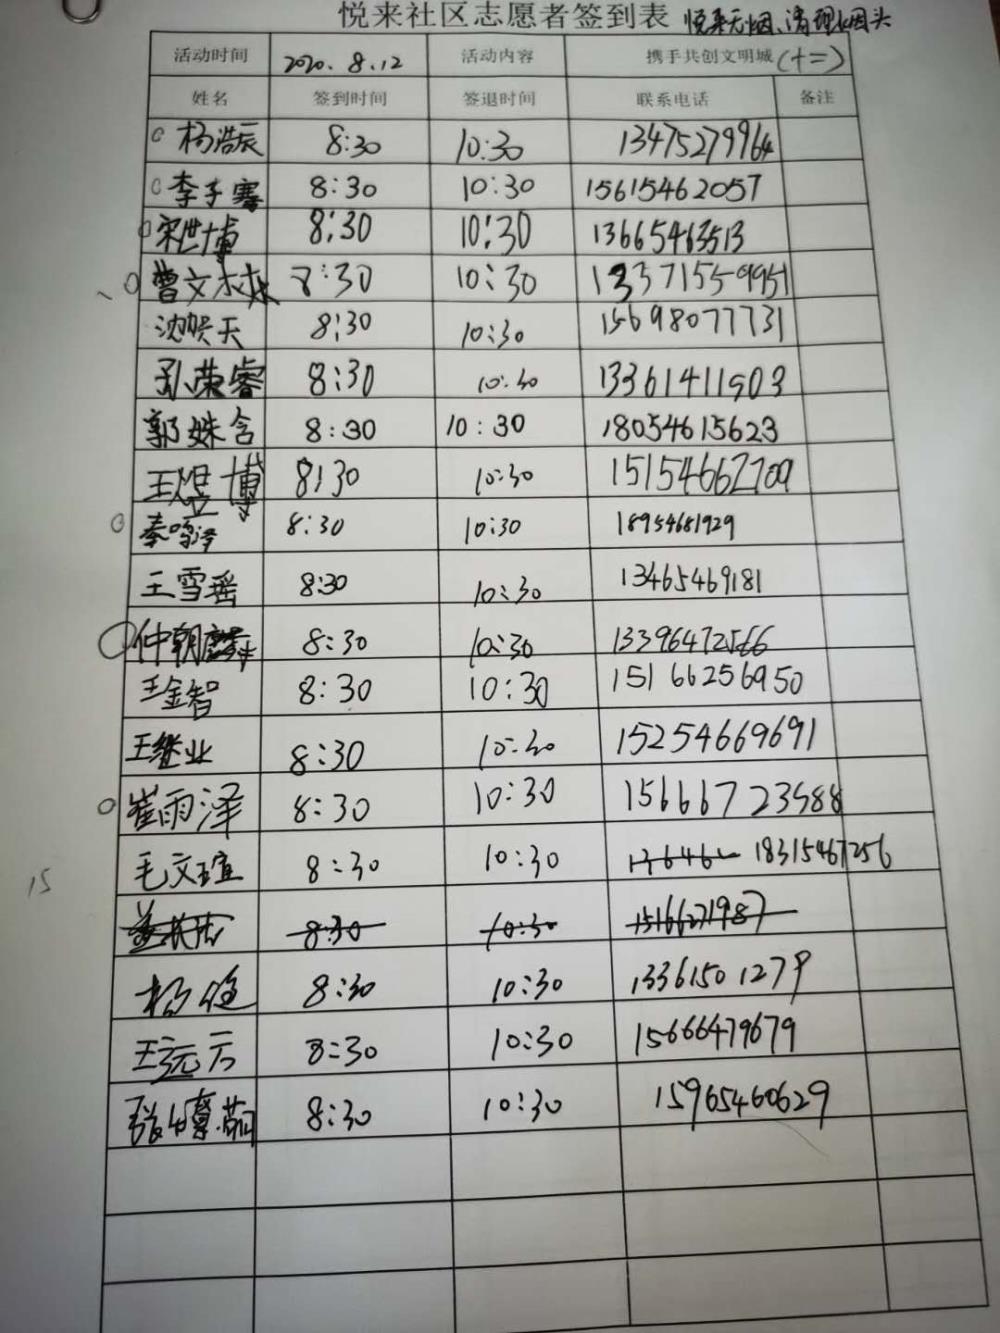 悦来社区志愿者签到表 悦来无烟、清理烟头
活动时间 2020.8.12 活动内容 携手共创文明城(十二)
姓名 签到时间 签退时间 联系电话 备注
杨浩辰 8:30 10:30 13475279964
李子骞 8:30 10:30 15615462057
宋世博 8:30 10:30 13665463513
曹文 8:30 10:30 13371559951
沈煚天 8:30 10:30 15698077731
孙荣睿 8:30 10:30 13361411903
郭姝含 8:30 10:30 18054615623
王煜博 8:30 10:30 15154662709
秦鸣泽 8:30 10:30 18954681929
王雪瑶 8:30 10:30 13465469181
仲朝麟 8:30 10:30 13396472566
王金智 8:30 10:30 15166256950
王继业 8:30 10:30 15254669691
崔雨泽 8:30 10:30 15666723988
毛文瑄 8:30 10:30 136461 18315467256
15
8:30 10:30 15166271987
杨 8:30 10:30 13361501279
王远方 8:30 10:30 15666479679
张 8:30 10:30 15965460629